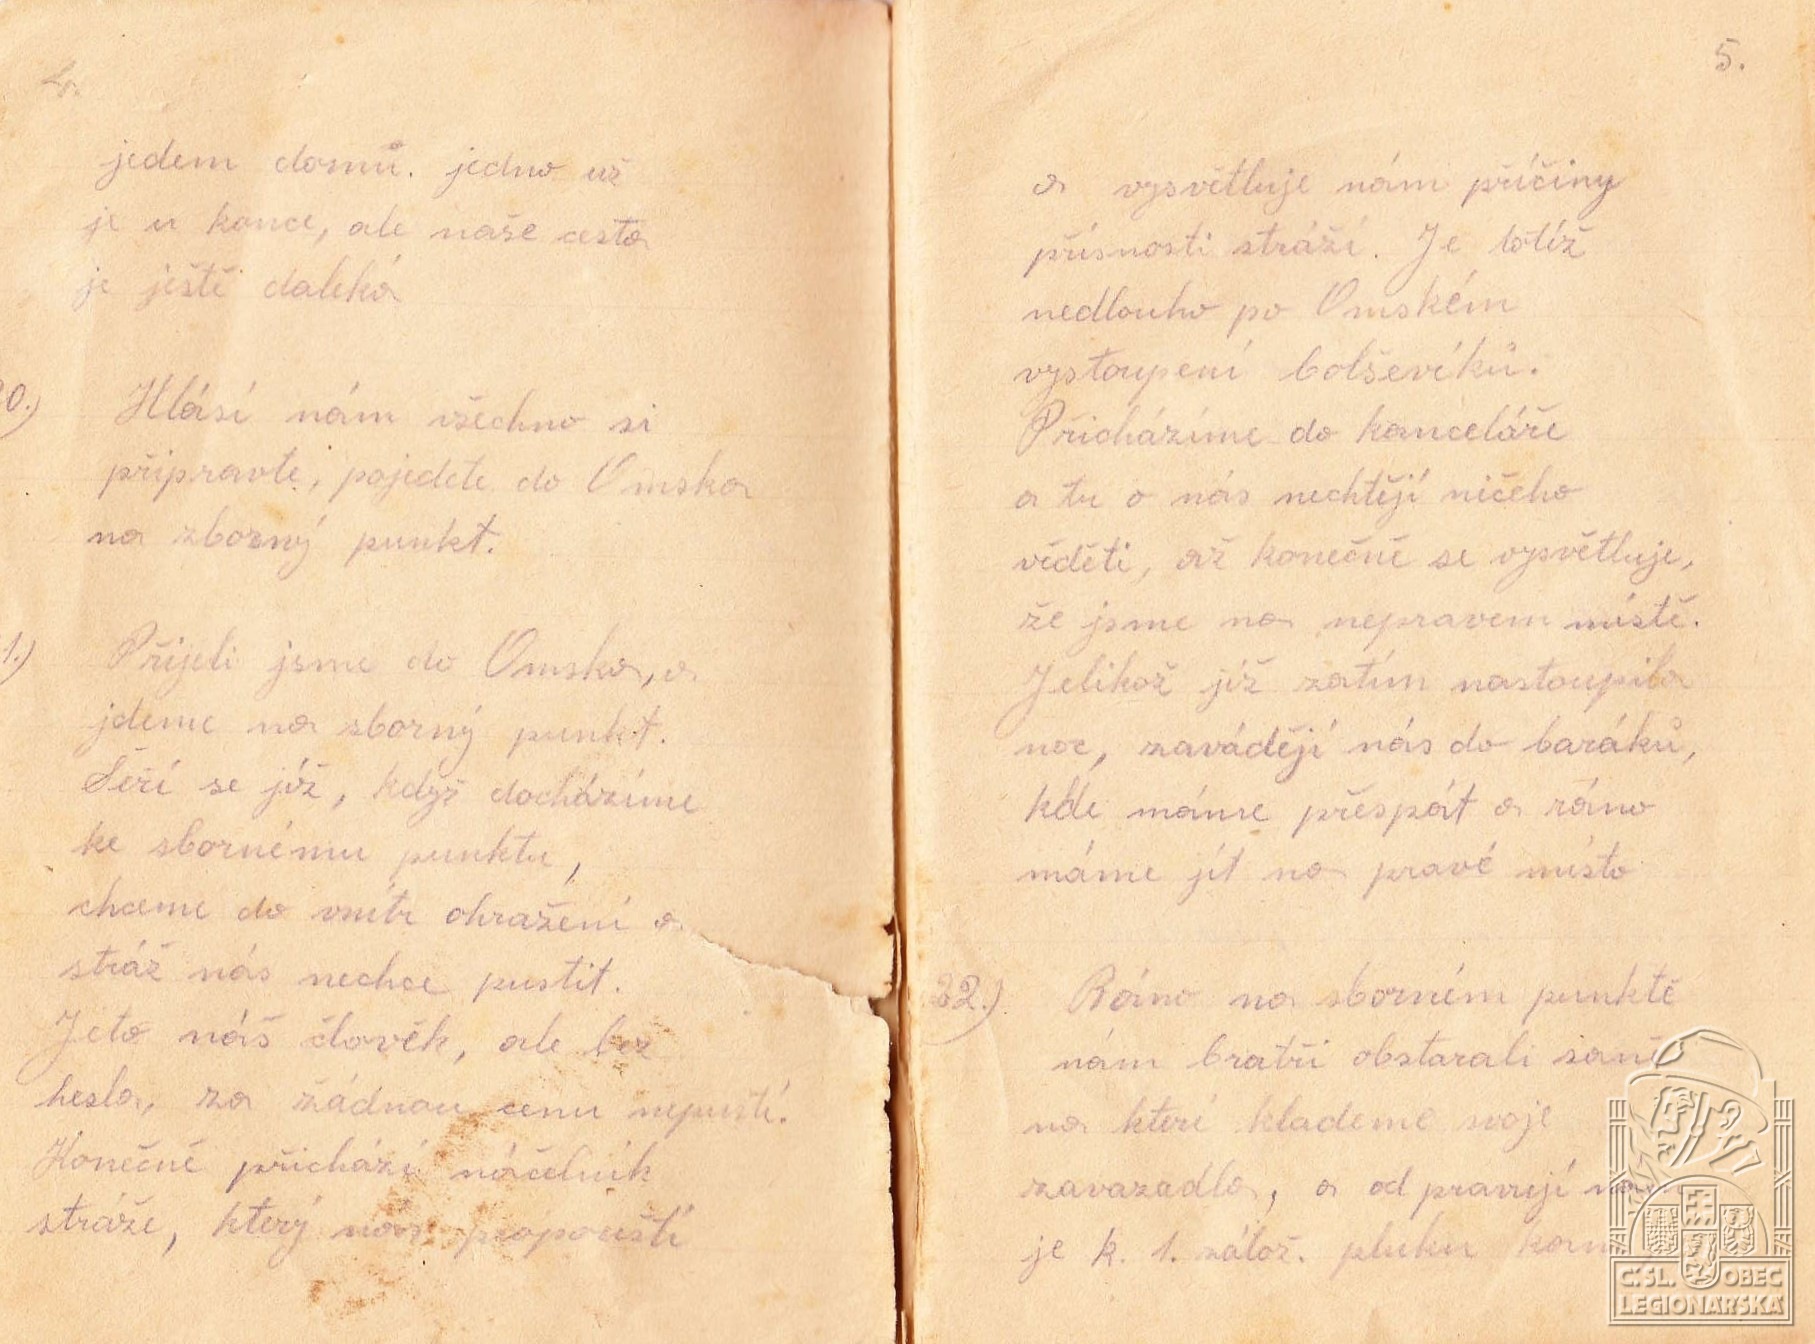 4.
jedem domů. jedno už
je u konce, ale naše cesta
je ještě daleká
20.) Hlásí nám všechno si
připravte, pojedete do Omska
na zborný punkt.
21.) Přijeli jsme do Omska, a
jdeme na sborný punkt.
Šeří se již, když docházíme
ke sbornému punktu,
chceme do vnitř ohražení a
stráž nás nechce pustit.
Jeto náš člověk, ale bez
hesla, za žádnou cenu nepustí.
Konečně přichází náčelník
stráže, který nás propouští
5.
a vysvětluje nám příčiny
přísnosti stráží. Je totiž
nedlouho po Omském
vystoupení bolševíků.
Přicházíme do kanceláře
a tu o nás nechtějí ničeho
věděti, až konečně se vysvětluje,
že jsme na nepravem místě.
Jelikož již zatím nastoupila
noc, zavádějí nás do baráků,
kde máme přespát a ráno
máme jít na pravé místo
22.) Ráno na sborném punktě
nám bratři obstarali saně
na které klademe svoje
zavazadla, a od pravují
je k. 1. zálož. pluku
Č. SL. OBEC
LEGIONÁŘSKÁ